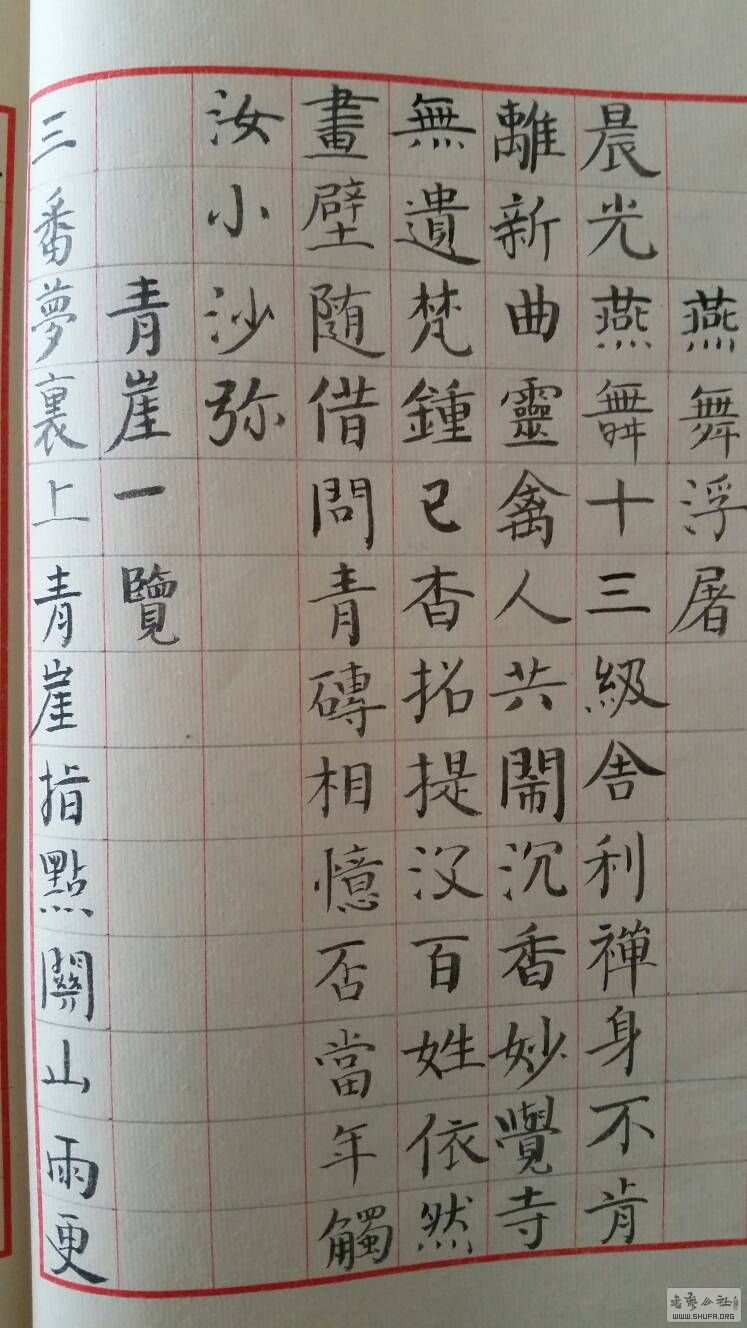 燕舞浮屠
晨光燕舞十三級舍利禪身不肯
離新曲靈禽人共鬧沉香妙覺寺
無遺梵鍾已杳招提沒百姓依然
畫壁随借問青磚相憶否當年觸
汝小沙弥
青崖一覽
三番夢裏上青崖指點關山雨更
WWW.SHUFA.ORG